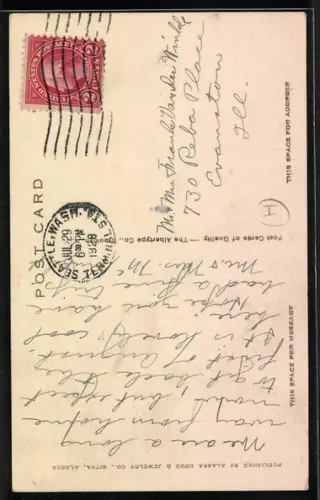 PUBLISHED BY ALASKA DRUG & JEWELRY CO., SITKA, ALASKA
POST CARD
THIS SPACE FOR MESSAGE
THIS SPACE FOR ADDRESS
Post Cards of Quality. — The Albertype Co.,
SEATTLE, WASH.
TERMINAL STA.
JUL 29
6 PM
1928
We are a long
way from home
now, but expect
to get back the
first of August.
It is lovely & cool
here.
Hope you have
had a fine trip
Mr. & Mrs. Mc
Mr. Mrs. Frank Vander Winkle
730 Reba Place
Evanston
Ill.
14
2
2